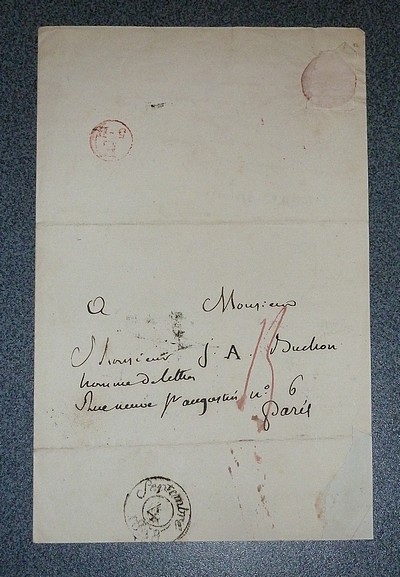 A Monsieur
Monsieur J A. Buchon
homme de lettres
Rue neuve St augustin n° 6
Paris
13
Septembre